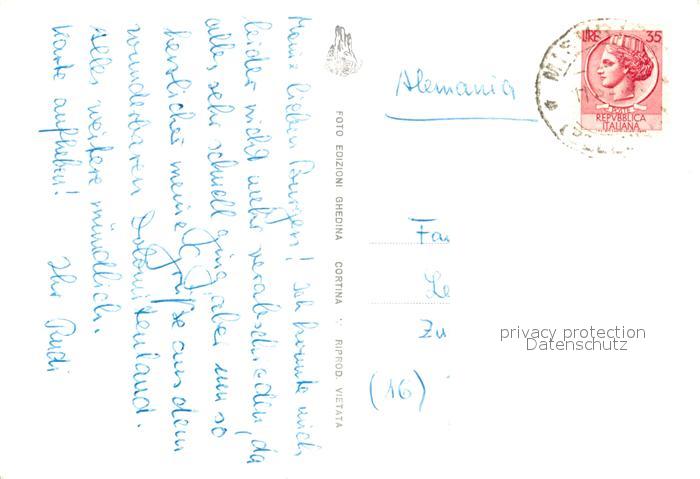 Meine lieben Burgers! Ich konnte mich
leider nicht mehr verabschieden, da
alles sehr schnell ging, aber um so
herzlicher meine Grüße aus dem
wunderbaren Dolomitenland.
Alles weitere mündlich.
Karte aufheben! Ihr Rudi
FOTO EDIZIONI GHEDINA CORTINA RIPROD. VIETATA
Alemania
LIRE 35
POSTE
REPVBBLICA
ITALIANA
Fa
Le
Zu
(16)
privacy protection
Datenschutz